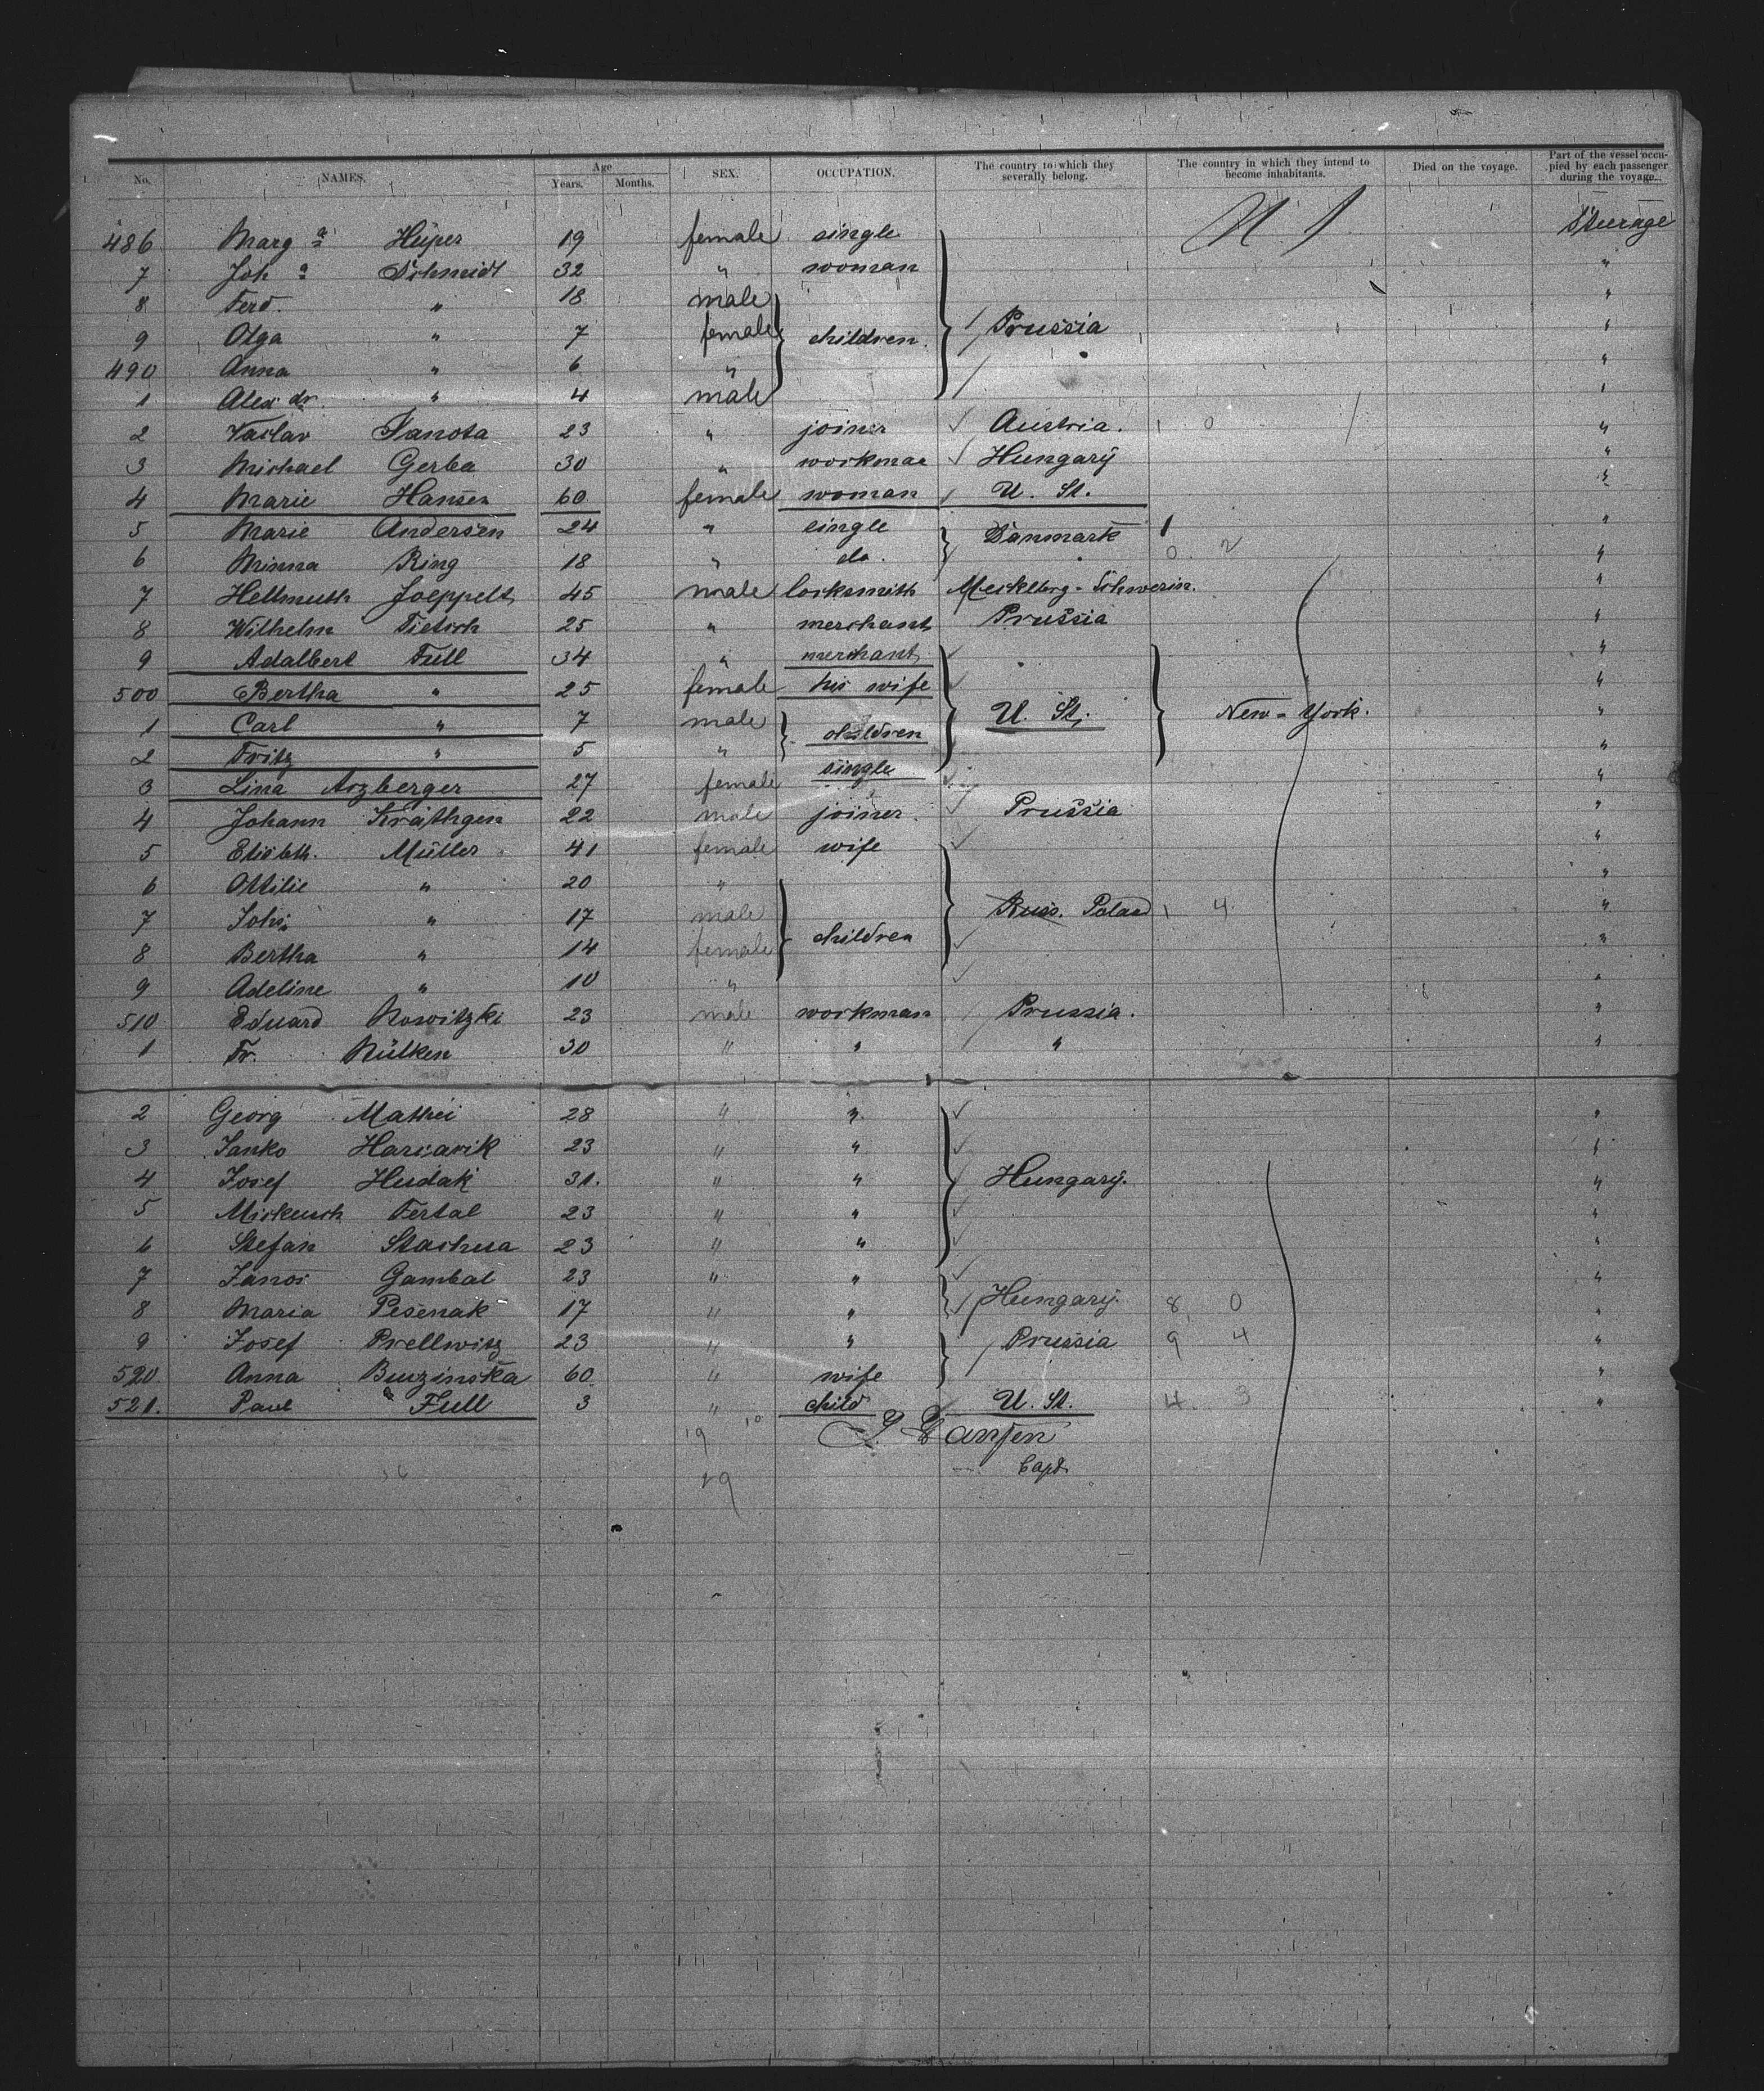 No. NAMES. Age Years. Months. SEX. OCCUPATION. The country to which they severally belong. The country in which they intend to become inhabitants. Died on the voyage. Part of the vessel occupied by each passenger during the voyage.
486 Marg a Hüper 19 female single U S Steerage
7 Joh a Schmidt 32 " woman "
8 Ferd. " 18 male "
9 Olga " 7 female children. Prussia "
490 Anna " 6 " "
1 Alexdr. " 4 male "
2 Vaclav Janota 23 " joiner Austria. 1 0 "
3 Michael Gerba 30 " workman Hungary "
4 Marie Hansen 60 female woman U. St. "
5 Marie Andersen 24 " single Danmark 1 "
6 Minna Ring 18 " do. 0 2 "
7 Hellmuth Joeppelt 45 male locksmith Mecklbrg-Schwerin. "
8 Wilhelm Tietsch 25 " merchant Prussia "
9 Adalbert Full 34 " merchant "
500 Bertha " 25 female his wife "
1 Carl " 7 male children U. St. New-York. "
2 Fritz " 5 " "
3 Lina Arzberger 27 female single "
4 Johann Kräthgen 22 male joiner. Prussia "
5 Elisbth. Müller 41 female wife "
6 Ottilie " 20 " "
7 Joh. " 17 male Russ. Poland 1 4 "
8 Bertha " 14 female children "
9 Adeline " 10 " "
510 Eduard Nowitzki 23 male workman Prussia. "
1 Fr. Nülken 30 " " " "
2 Georg Mathei 28 " " "
3 Janko Harcarik 23 " " "
4 Josef Hudak 31. " " Hungary. "
5 Mickusch Fertal 23 " " "
6 Stefan Stachura 23 " " "
7 Janos Gambal 23 " " "
8 Maria Pesenak 17 " " Hungary. 8 0 "
9 Josef Prellwitz 23 " " Prussia 9 4 "
520 Anna Buczinska 60 " wife "
521. Paul Full 3 " child U. St. 4 3 "
19 10
Capt.
19